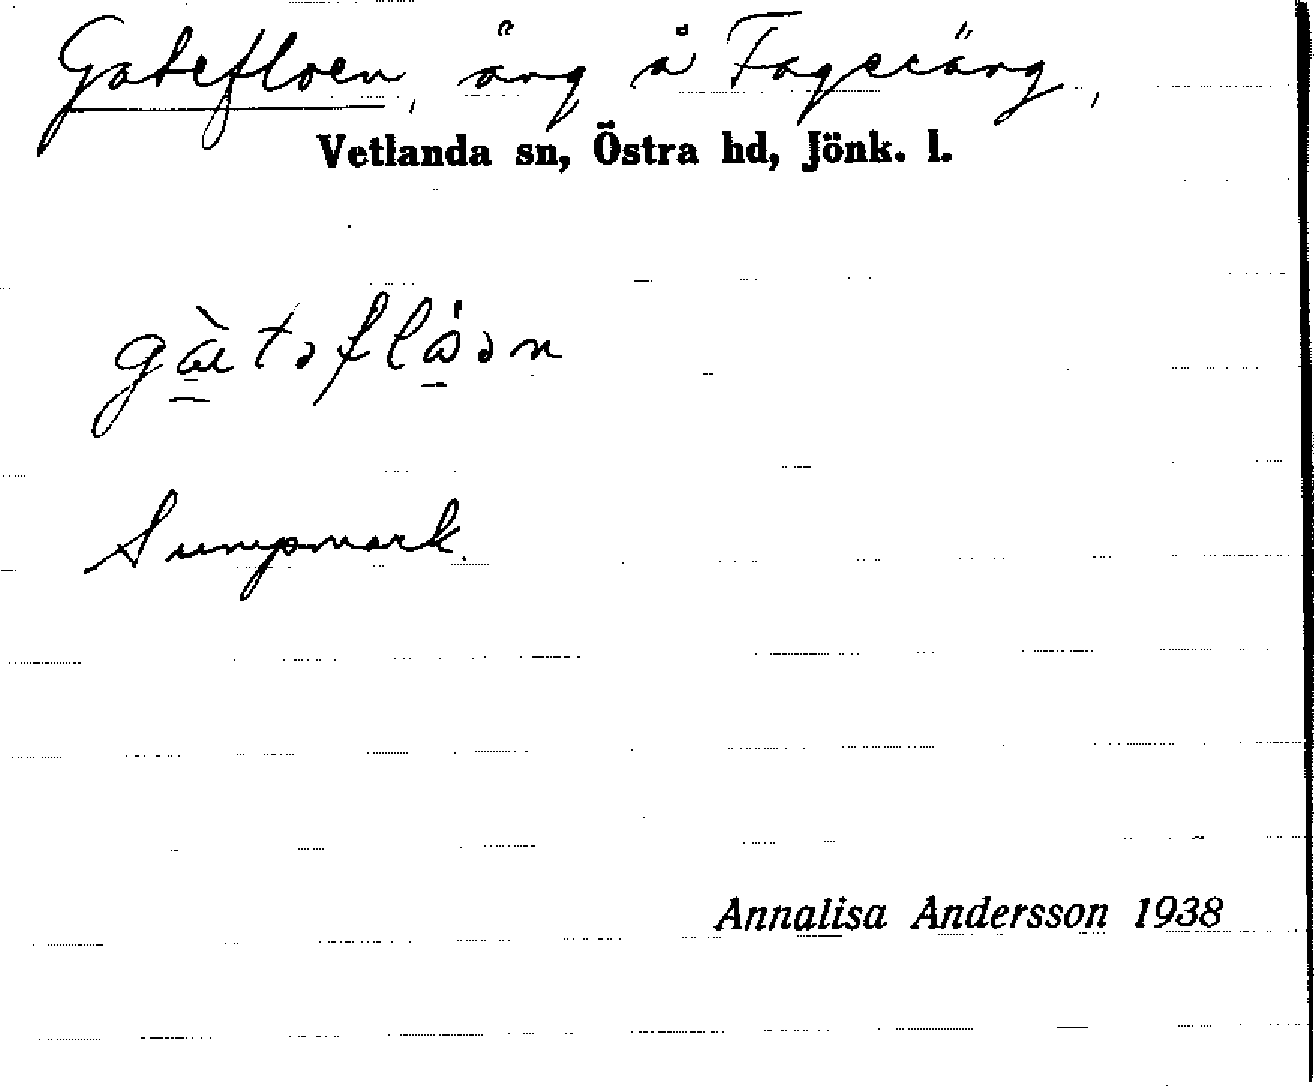 Gatefloen, äng å Fageräng,
Vetlanda sn, Östra hd, Jönk. l.
Sumpmark.
Annalisa Andersson 1938